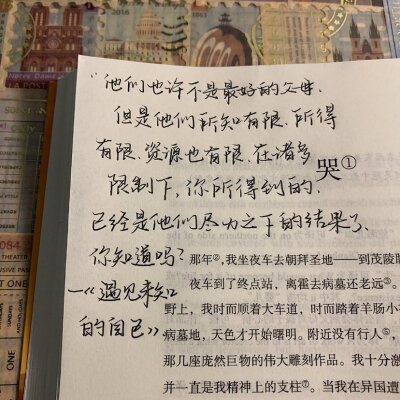 "他们也许不是最好的父母.
但是他们所知有限、所得
有限、资源也有限、在诸多
限制下,你所得到的、
已经是他们尽力之下的结果了、
你知道吗?
—《遇见未知
的自己》
哭①
那年②,我坐夜车去朝拜圣地——到茂陵
夜车到了终点站,离霍去病墓还老远
野上,我时而顺着大车道,时而踏着羊肠小
病墓地,天色才开始曙明。附近没有行人⑥,
那几座庞然巨物的伟大雕刻作品。我十分激
并一直是我精神上的支柱⑦。当我在异国遭
NOTRE DAME
LA POSTE
2016
1863
084
ONE